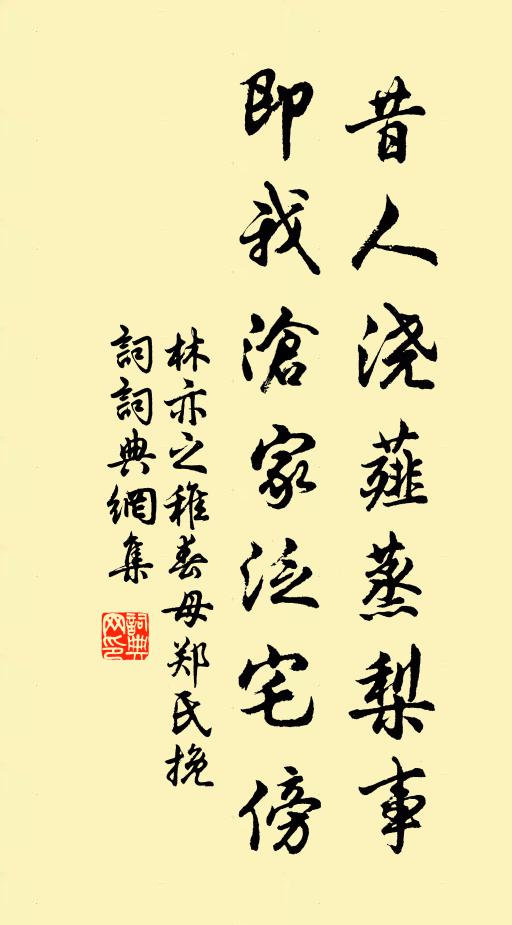 昔人浇薤蒸梨事
即我滄家泛宅傍
林亦之稚春母郑氏挽
詞詞典網集
詞典
网印